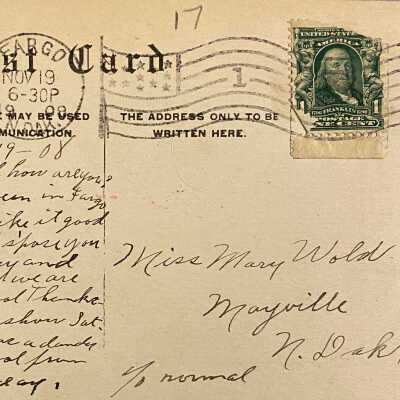 17
FARGO
NOV 19
6-30P
1908
N. DAK.
1
UNITED STATES
OF AMERICA
FRANKLIN
1 1
POSTAGE
ONE CENT
st Card
E MAY BE USED
MUNICATION.
THE ADDRESS ONLY TO BE
WRITTEN HERE.
19-08
how are you
een in Fargo
ike it good
s'pose you
y and
we are
ol Thanks
show Sat.
e a dandy
ol from
day.
Miss Mary Wold
Mayville
N. Dak.
c/o normal